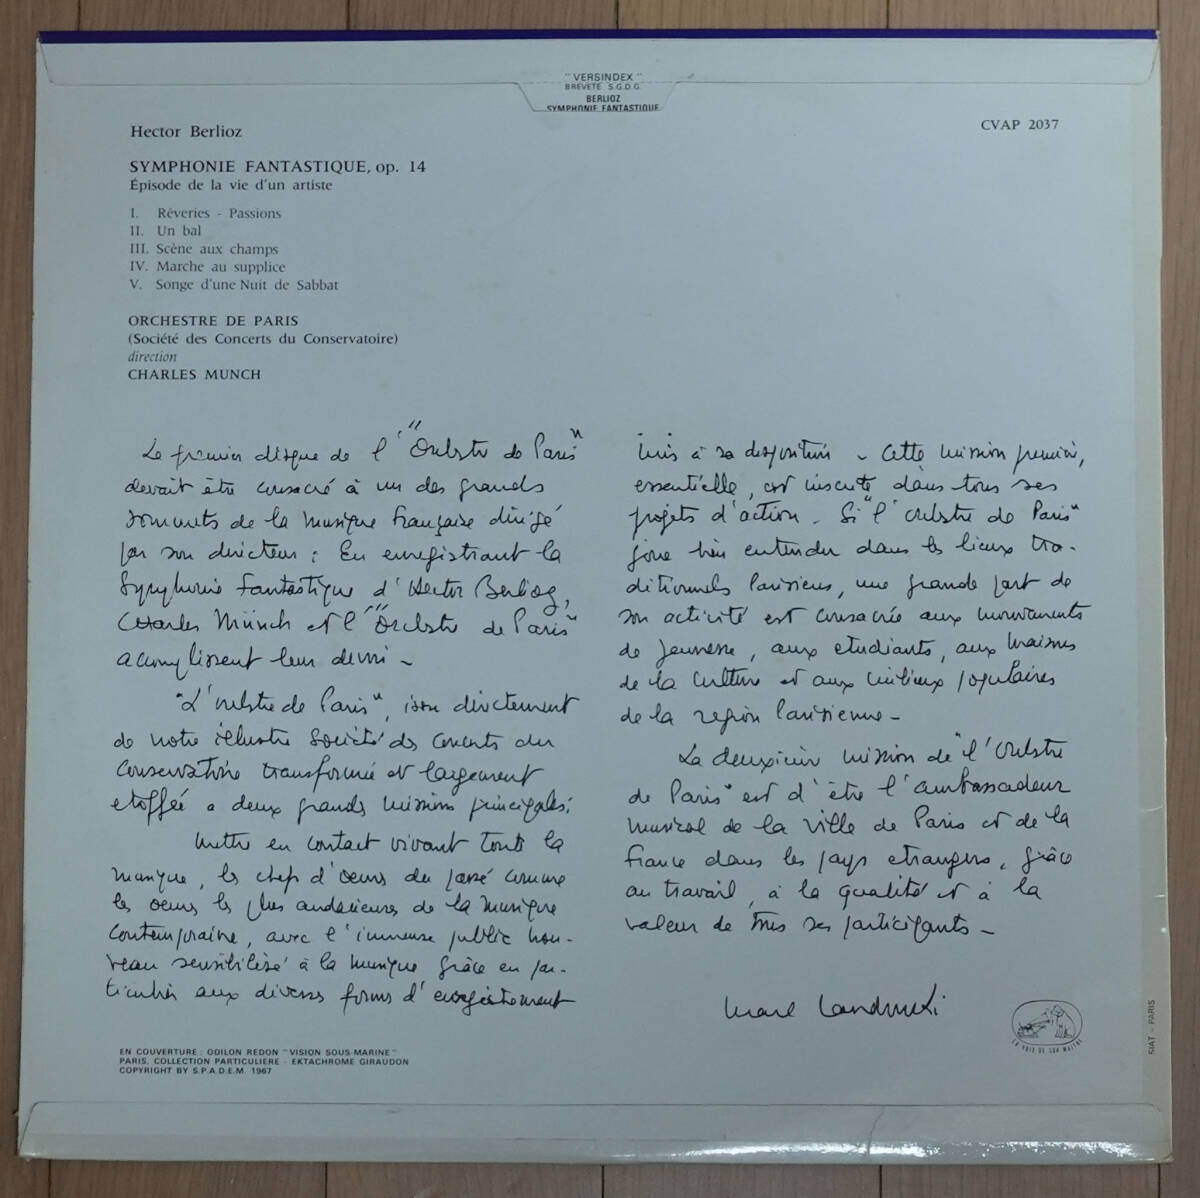 "VERSINDEX"
BREVETÉ S.G.D.G.
BERLIOZ
SYMPHONIE FANTASTIQUE
Hector Berlioz
CVAP 2037
SYMPHONIE FANTASTIQUE, op. 14
Épisode de la vie d'un artiste
I. Rêveries - Passions
II. Un bal
III. Scène aux champs
IV. Marche au supplice
V. Songe d'une Nuit de Sabbat
ORCHESTRE DE PARIS
(Société des Concerts du Conservatoire)
direction
CHARLES MUNCH
Le premier disque de l'"Orchestre de Paris"
devait être consacré à un des grands
sommets de la musique française dirigé
par son directeur : En enregistrant la
Symphonie Fantastique d'Hector Berlioz,
Charles Münch et l'"Orchestre de Paris"
accomplissent leur devoir –
"L'orchestre de Paris", issu directement
de notre illustre Société des concerts du
conservatoire transformée et largement
étoffée a deux grandes missions principales :
Mettre en contact vivant toute la
musique, les chefs d'oeuvres du passé comme
les oeuvres les plus audacieuses de la musique
contemporaine, avec l'immense public nou-
veau sensibilisé à la musique grâce en par-
ticulier aux diverses formes d'enregistrement
mis à sa disposition – Cette mission première,
essentielle, est inscrite dans tous ses
projets d'action – Si "l'orchestre de Paris"
joue bien entendu dans les lieux tra-
ditionnels Parisiens, une grande part de
son activité est consacrée aux mouvements
de jeunesse, aux étudiants, aux maisons
de la culture et aux milieux populaires
de la région Parisienne –
La deuxième mission de "l'orchestre
de Paris" est d'être l'ambassadeur
musical de la Ville de Paris et de la
France dans les pays étrangers, grâce
au travail, à la qualité et à la
valeur de tous ses participants –
Marcel Landowski
EN COUVERTURE : ODILON REDON "VISION SOUS-MARINE"
PARIS, COLLECTION PARTICULIÈRE - EKTACHROME GIRAUDON
COPYRIGHT BY S.P.A.D.E.M. 1967
LA VOIX DE SON MAITRE
SIAT - PARIS